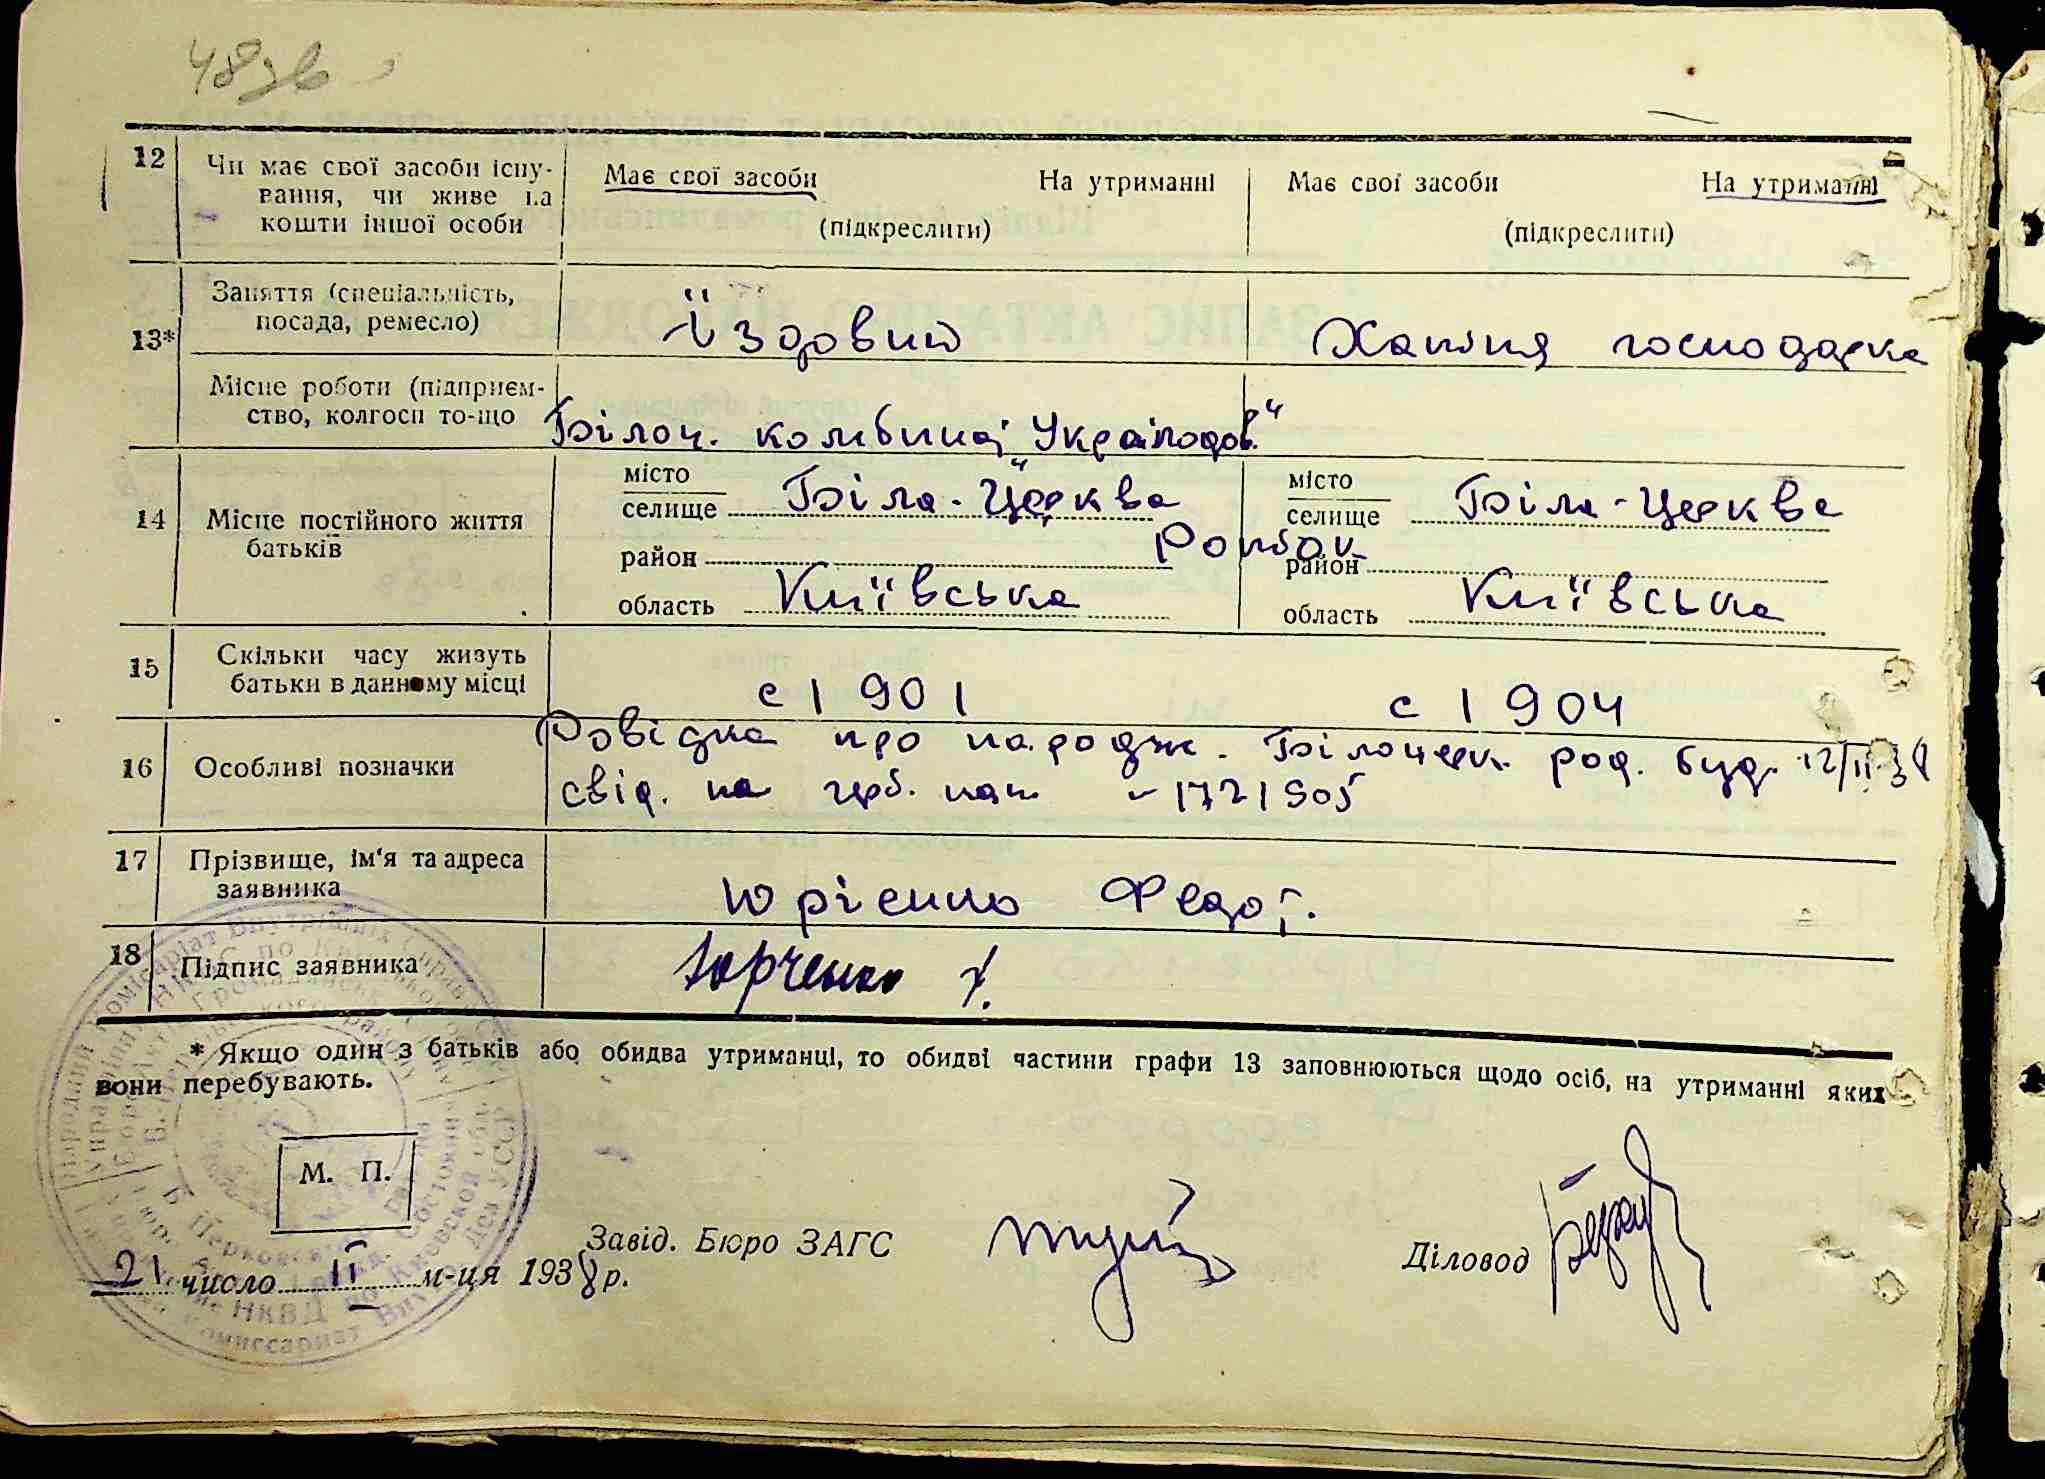 48 зв
12 Чи має свої засоби існування, чи живе на кошти іншої особи
Має свої засоби На утриманні
(підкреслити)
Має свої засоби На утриманні
(підкреслити)
13* Заняття (спеціальність,
посада, ремесло)
Їздовий
Хатня господарка
Місце роботи (підприєм-
ство, колгосп то-що
Білоц. комбінат
14 Місце постійного життя
батьків
місто
селище Біла-Церква
район
область Київська
місто
селище Біла-Церква
район
область Київська
15 Скільки часу живуть
батьки в данному місці
с 1901 с 1904
16 Особливі позначки
Довідка про народж. Білоцерк. род. буд. 12/II.38
свід. на герб. пап. 1721905
17 Прізвище, ім'я та адреса
заявника
Юрченко Федот.
18 Підпис заявника
Юрченко
* Якщо один з батьків або обидва утриманці, то обидві частини графи 13 заповнюються щодо осіб, на утриманні яких
вони перебувають.
М. П.
Завід. Бюро ЗАГС
Діловод
21 число II м-ця 1938 р.